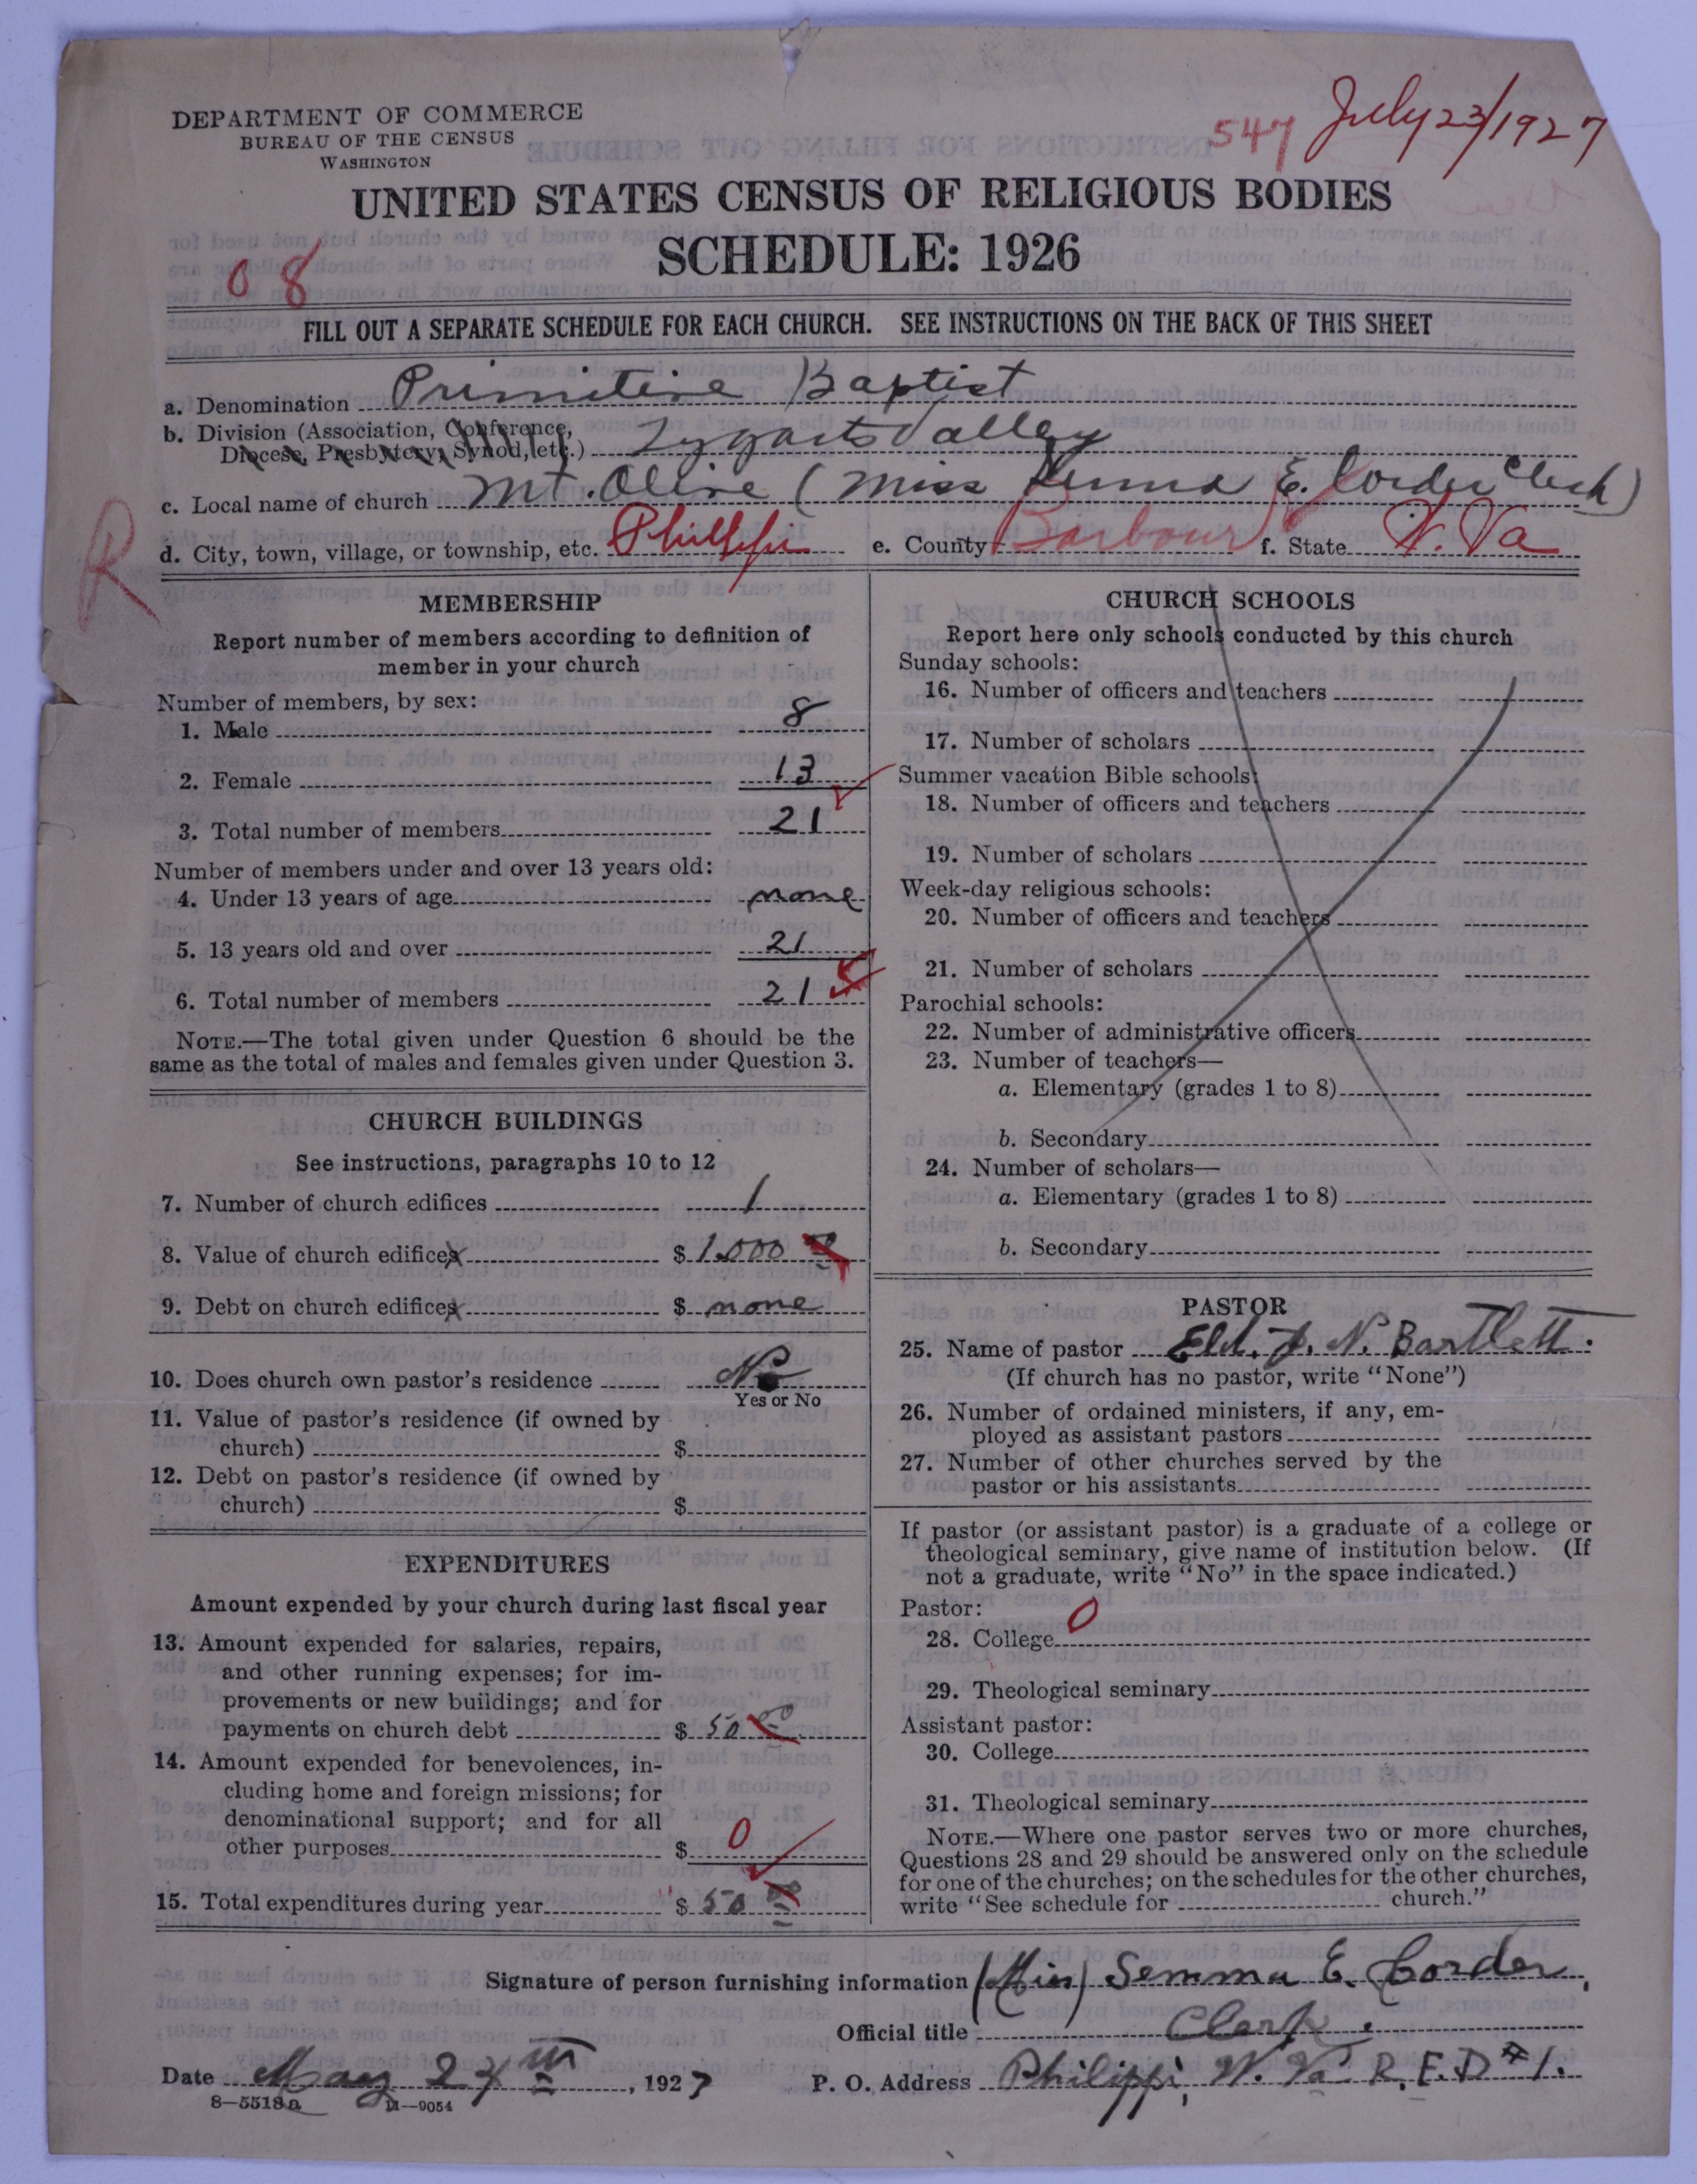 DEPARTMENT OF COMMERCE
BUREAU OF THE CENSUS
WASHINGTON
547 July 23/1927
UNITED STATES CENSUS OF RELIGIOUS BODIES
SCHEDULE: 1926
08
FILL OUT A SEPARATE SCHEDULE FOR EACH CHURCH. SEE INSTRUCTIONS ON THE BACK OF THIS SHEET
a. Denomination Primitive Baptist
b. Division (Association, Conference, Diocese, Presbytery, Synod, etc.) Tygarts Valley
c. Local name of church Mt. Olive (Miss E. Corder Clerk)
d. City, town, village, or township, etc. Phillipi e. County Barbour f. State W. Va
R
MEMBERSHIP
Report number of members according to definition of
member in your church
Number of members, by sex:
1. Male 8
2. Female 13
3. Total number of members 21
Number of members under and over 13 years old:
4. Under 13 years of age none
5. 13 years old and over 21
6. Total number of members 21
NOTE.—The total given under Question 6 should be the
same as the total of males and females given under Question 3.
CHURCH BUILDINGS
See instructions, paragraphs 10 to 12
7. Number of church edifices 1
8. Value of church edifices $ 1.000 00
9. Debt on church edifices $ none
10. Does church own pastor's residence No
Yes or No
11. Value of pastor's residence (if owned by
church) $
12. Debt on pastor's residence (if owned by
church) $
EXPENDITURES
Amount expended by your church during last fiscal year
13. Amount expended for salaries, repairs,
and other running expenses; for im-
provements or new buildings; and for
payments on church debt $ 50 00
14. Amount expended for benevolences, in-
cluding home and foreign missions; for
denominational support; and for all
other purposes $ 0
15. Total expenditures during year $ 50 00
CHURCH SCHOOLS
Report here only schools conducted by this church
Sunday schools:
16. Number of officers and teachers
17. Number of scholars
Summer vacation Bible schools:
18. Number of officers and teachers
19. Number of scholars
Week-day religious schools:
20. Number of officers and teachers
21. Number of scholars
Parochial schools:
22. Number of administrative officers
23. Number of teachers—
a. Elementary (grades 1 to 8)
b. Secondary
24. Number of scholars—
a. Elementary (grades 1 to 8)
b. Secondary
PASTOR
25. Name of pastor Eld. J. N. Bartlett.
(If church has no pastor, write "None")
26. Number of ordained ministers, if any, em-
ployed as assistant pastors
27. Number of other churches served by the
pastor or his assistants
If pastor (or assistant pastor) is a graduate of a college or
theological seminary, give name of institution below. (If
not a graduate, write "No" in the space indicated.)
Pastor:
28. College 0
29. Theological seminary
Assistant pastor:
30. College
31. Theological seminary
NOTE.—Where one pastor serves two or more churches,
Questions 28 and 29 should be answered only on the schedule
for one of the churches; on the schedules for the other churches,
write "See schedule for church."
Signature of person furnishing information (Miss) Semma E. Corder,
Official title Clerk.
Date May 24th, 1927 P. O. Address Philippi, W. Va. R.F.D #1.
8—5518a 11—9054